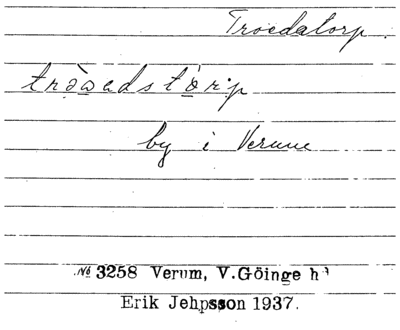 Troedatorp.
tròwadstòrp
by i Verum
№ 3258 Verum, V.Göinge hd
Erik Jehpsson 1937.